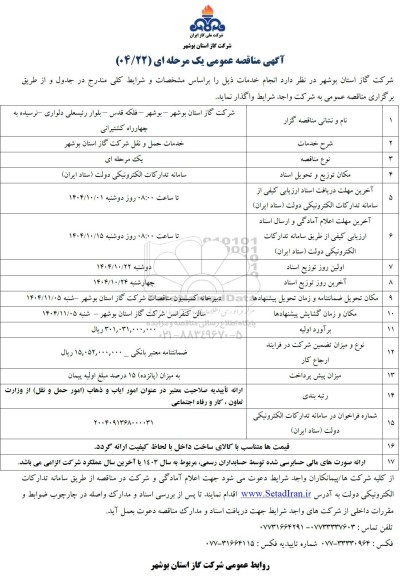 شرکت ملی گاز ایران
شرکت گاز استان بوشهر
آگهی مناقصه عمومی یک مرحله ای (۰۴/۲۲)
شرکت گاز استان بوشهر در نظر دارد انجام خدمات ذیل را براساس مشخصات و شرایط کلی مندرج در جدول و از طریق
برگزاری مناقصه عمومی به شرکت واجد شرایط واگذار نماید.
۱ نام و نشانی مناقصه گزار شرکت گاز استان بوشهر – بوشهر – فلکه قدس – بلوار رئیسعلی دلواری –نرسیده به
چهارراه کشتیرانی
۲ شرح خدمات خدمات حمل و نقل شرکت گاز استان بوشهر
۳ نوع مناقصه یک مرحله ای
۴ مکان توزیع و تحویل اسناد سامانه تدارکات الکترونیکی دولت (ستاد ایران)
۵ آخرین مهلت دریافت اسناد ارزیابی کیفی از
سامانه تدارکات الکترونیکی دولت (ستاد ایران) تا ساعت ۰۸:۰۰ روز دوشنبه ۱۴۰۴/۱۰/۰۱
۶ آخرین مهلت اعلام آمادگی و ارسال اسناد
ارزیابی کیفی از طریق سامانه تدارکات
الکترونیکی دولت (ستاد ایران) تا ساعت ۰۸:۰۰ روز دوشنبه ۱۴۰۴/۱۰/۱۵
۷ اولین روز توزیع اسناد دوشنبه ۱۴۰۴/۱۰/۲۲
۸ آخرین روز توزیع اسناد چهارشنبه ۱۴۰۴/۱۰/۲۴
۹ مکان تحویل ضمانتنامه و زمان تحویل پیشنهادها دبیرخانه کمیسیون مناقصات شرکت گاز استان بوشهر –شنبه ۱۴۰۴/۱۱/۰۵
۱۰ مکان و زمان گشایش پیشنهادها سالن کنفرانس شرکت گاز استان بوشهر – شنبه ۱۴۰۴/۱۱/۰۵
۱۱ برآورد اولیه ۳۰۱,۰۳۱,۰۰۰,۰۰۰ ریال
۱۲ نوع و میزان تضمین شرکت در فرایند
ارجاع کار ضمانتنامه معتبر بانکی __ ۱۵,۰۵۲,۰۰۰,۰۰۰ ریال
۱۳ میزان پیش پرداخت به میزان (پانزده) ۱۵ درصد مبلغ اولیه پیمان
۱۴ رتبه بندی ارائه تأییدیه صلاحیت معتبر در عنوان امور ایاب و ذهاب (امور حمل و نقل) از وزارت
تعاون ، کار و رفاه اجتماعی
۱۵ شماره فراخوان در سامانه تدارکات الکترونیکی
دولت (ستاد ایران) ۲۰۰۴۰۹۱۳۶۸۰۰۰۰۳۱
۱۶ قیمت ها متناسب با کالای ساخت داخل با لحاظ کیفیت ارائه گردد.
۱۷ ارائه صورت های مالی حسابرسی شده توسط حسابداران رسمی، مربوط به سال ۱۴۰۳ یا آخرین سال عملکرد شرکت الزامی می باشد.
از کلیه شرکت ها/پیمانکاران واجد شرایط دعوت می شود جهت اعلام آمادگی و شرکت در مناقصه از طریق سامانه تدارکات
الکترونیکی دولت به آدرس www.SetadIran.ir اقدام نمایند تا پس از بررسی اسناد و مدارک واصله در چارچوب ضوابط و
مقررات داخلی از شرکت های واجد شرایط جهت دریافت اسناد و مدارک مناقصه دعوت بعمل آید.
تلفن تماس : ۰۷۷۳۳۳۳۷۶۰۳- ۰۷۷۳۱۶۶۴۲۹۱
فکس : ۳۳۳۳۰۹۶۴-۰۷۷ شماره تاییدیه فکس : ۳۱۶۶۴۱۱۵-۰۷۷
روابط عمومی شرکت گاز استان بوشهر
۰۲۱-۸۸۳۴۹۶۷۰-۵